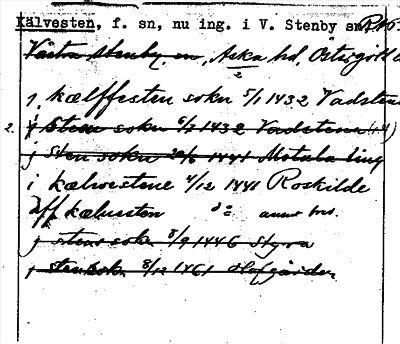 Kälvesten, f. sn, nu ing. i V. Stenby sn
Västra Stenby sn, Aska hd, Östergötl
2
j kælffesten sokn 5/1 1432 Vadstena
2. j Sten sokn 6/7 1432 Vadstena
j Sten sokn 20/6 1441 Motala ting
i kælwestene 4/12 1441 Roskilde
aff kæluesten d:o annat bref.
j stens sok 8/9 1446 Styra
j stenssok 8/12 1461 Hofgården